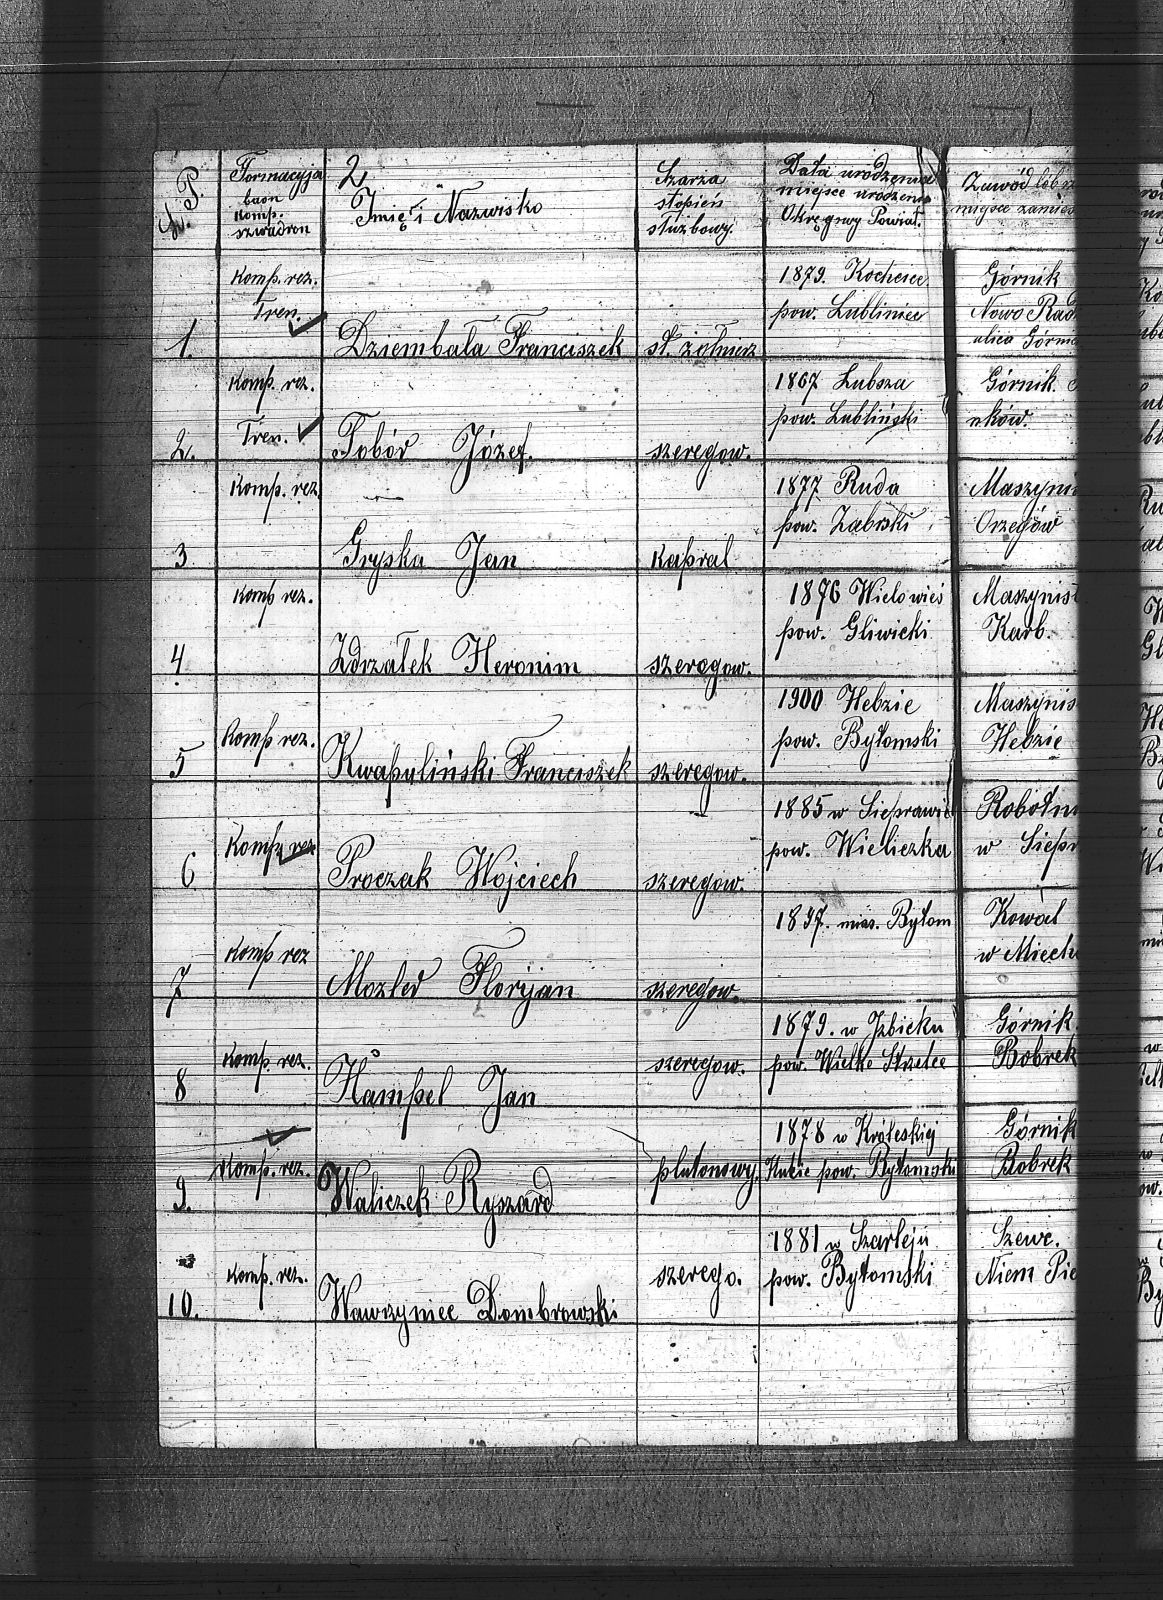 L. P.
Formacyja
baon
Komp.
szwadron
2
Imię i Nazwisko
Szarza
stopień
służbowy.
Data urodzenia
miejsce urodzenia
Okręgowy Powiat.
Zawód lub
miejsce zamies
1.
Komp. rez.
Tren.
Dziembała Franciszek
st. żołnierz
1879. Kochcice
pow. Lubliniec
Górnik
Nowo Rad
ulica Górni
2.
Komp. rez.
Tren.
Tobór Józef.
szeregow.
1867 Lubsza
pow. Lubliński
Górnik
nków.
3
Komp. rez.
Gryska Jan
Kapral
1877 Ruda
pow. Zabrski
Maszyni
Orzegów
4
Komp rez.
Zdrzałek Heronim
szeregow.
1876 Wielowieś
pow. Gliwicki
Maszynist
Karb.
5
Komp rez.
Kwapuliński Franciszek
szeregow.
1900 Hebzie
pow. Bytomski
Maszynis
Hebzie
6
Komp. rez
Proczak Wojciech
szeregow.
1885 w Sieprawie
pow. Wieliczka
Robotni
w Siepr
7
Komp rez
Mozler Florijan
szeregow.
1897. mias. Bytom
Kowal
w Miech
8
Komp. rez.
Hampel Jan
szeregow.
1879. w Izbicku
pow. Wielke Strzelce
Górnik.
Bobrek
9.
Komp. rez.
Waliczek Ryszard
plutonowy.
1878 w Króleskij
Hucie pow. Bytomski
Górnik
Bobrek
10.
Komp. rez.
Wawrzyniec Dombrowski
szerego.
1881 w Szarleju
pow. Bytomski
Szewc.
Niem Pie